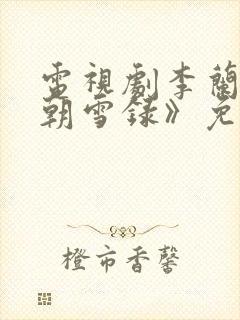 電視劇李蘭
朝雪録》免
橙市香馨